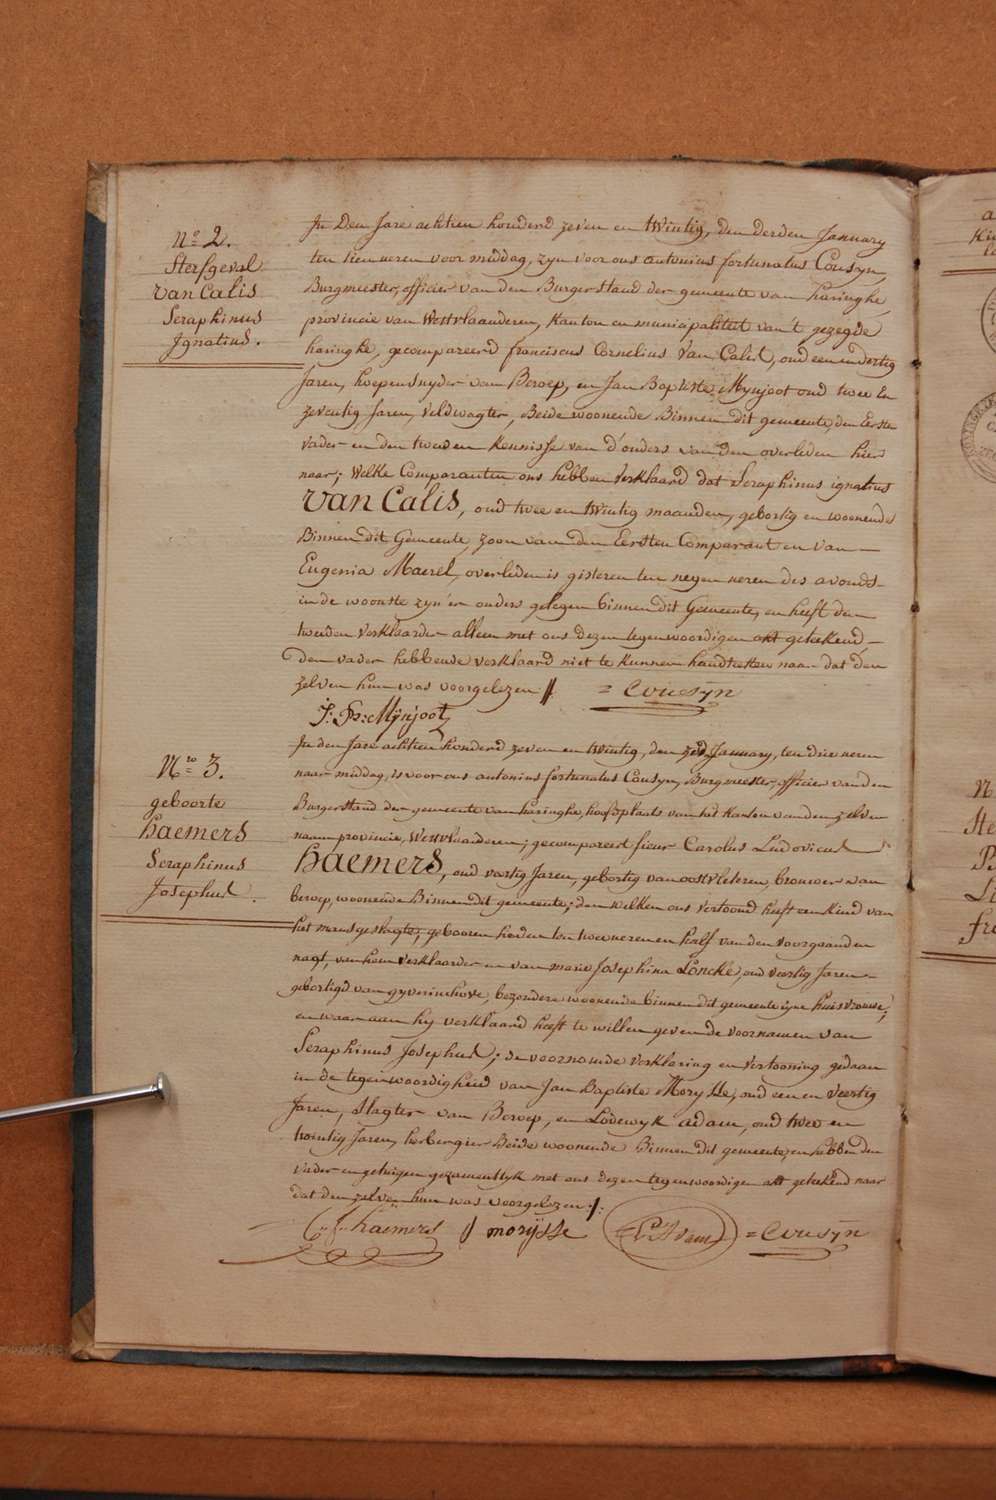 N.º 2.
Sterfgeval
Van Calis
Seraphinus
Ignatius.
In Den Jare achtien honderd zeven en twintig, den derden January
ten tien uren voor middag, zyn voor ons antonius fortunatus Cousyn,
Burgmeester, officier van den Burgerstand der gemeente van haringhe
provincie van Westvlaanderen, Kanton en municipaliteit van 't gezegde
haringhe, gecompareerd franciscus Cornelius Van Calis, oud een en dertig
Jaren, hoepensnyder van Beroep, en Jan Baptiste Mynjoot oud twee En
zeventig Jaren, Veldwagter, Beide woonende Binnen dit gemeente, den Eersten
vader en den tweeden Kennisse van d'ouders van den overleden hier
naar; Welke Comparanten ons hebben Verklaard dat Seraphinus ignatius
Van Calis, oud twee en twintig maanden, gebortig en woonende
Binnen dit Gemeente, zoon van den Eersten Comparant en van
Eugenia Maerel, overleden is gisteren ten negen uren des avonds
in de woonste zyn'er ouders gelegen binnen dit Gemeente, en heeft den
tweeden Verklaarder alleen met ons dezen tegenwoordigen akt geteekend
den vader hebbende verklaard niet te kunnen handteeken naar dat den
zelven hun was voorgelezen // = Cousÿn
J: Bt: Mijnjoot
N.ro 3.
geboorte
haemers
Seraphinus
Josephus.
In den Jare achtien honderd zeven en twintig, den January, ten drie uren
naar middag, is voor ons antonius fortunatus Cousyn, Burgmeester, officier van den
Burgerstand der gemeente van haringhe, hoofdplaets van het Kanton van den zelven
naam provincie, Westvlaanderen; gecompareerd sieur Carolus Ludovicus
haemers, oud vertig Jaren, gebortig van oostvleteren, brouwer van
beroep, woonende Binnen dit gemeente; den welken ons Vertoond heeft een Kind van
het mansgeslagte, gebooren heden ten twee uren en half van den voorgaanden
nagt, van hem Verklaarder en van marie Josephine Loncke, oud veertig Jaren
gebortigd van gyverinchove, bezondere woonende binnen dit gemeente zyne huisvrouwe,
en waar aan hy verklaard heeft te willen geven de voornamen van
Seraphinus Josephus; de voornomde Verklaring en Vertooning gedaan
in de tegenwoordigheid van Jan Baptiste Morysse, oud een en Veertig
Jaren, Slagter van Beroep, en Lodewyk adam, oud twee en
twintig Jaren, herbergier Beide woonende Binnen dit gemeente, en hebben den
Vader en getuigen gezamentlyk met ons dezen tegenwoordigen akt geteekend naar
dat den zelven hun was voorgelezen //:
haemers J morÿsse L. Adam = Cousÿn